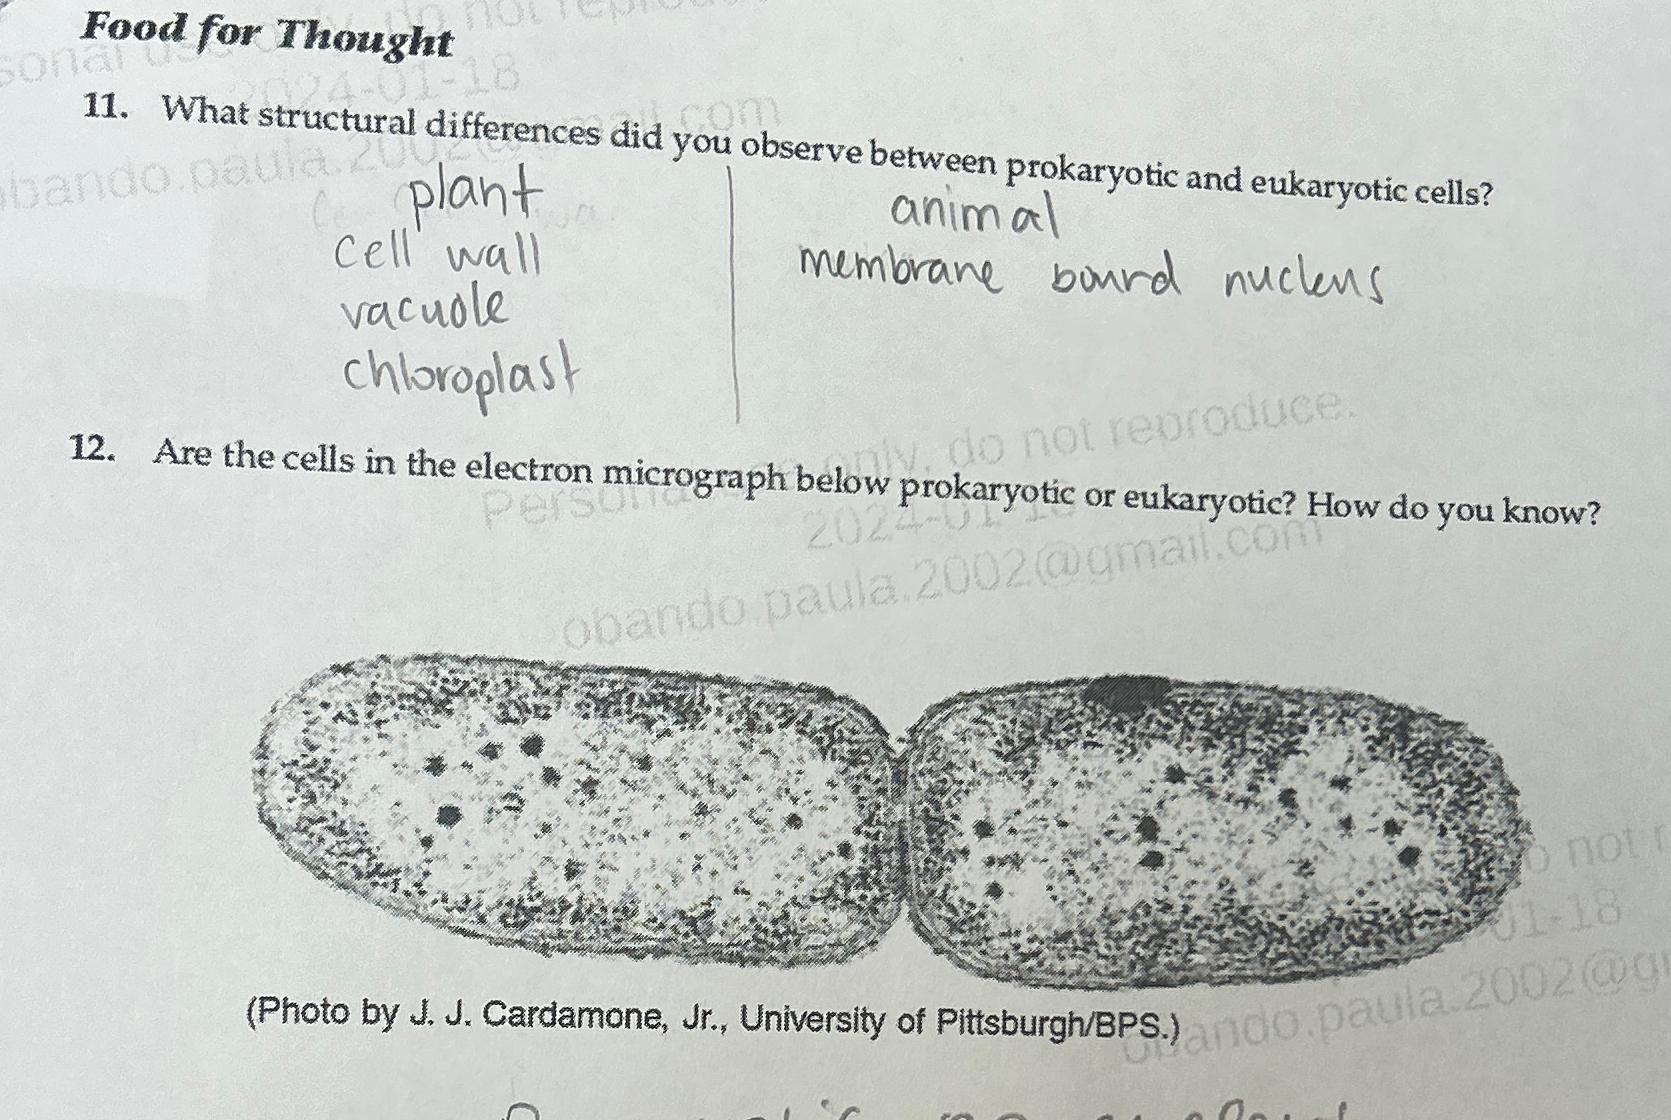 Food for Thought
11. What structural differences did you observe between prokaryotic and eukaryotic cells?
plant
cell wall
vacuole
chloroplast
animal
membrane bound nucleus
12. Are the cells in the electron micrograph below prokaryotic or eukaryotic? How do you know?
only, do not reproduce.
2024-01-18
obando.paula.2002@gmail.com
(Photo by J. J. Cardamone, Jr., University of Pittsburgh/BPS.)